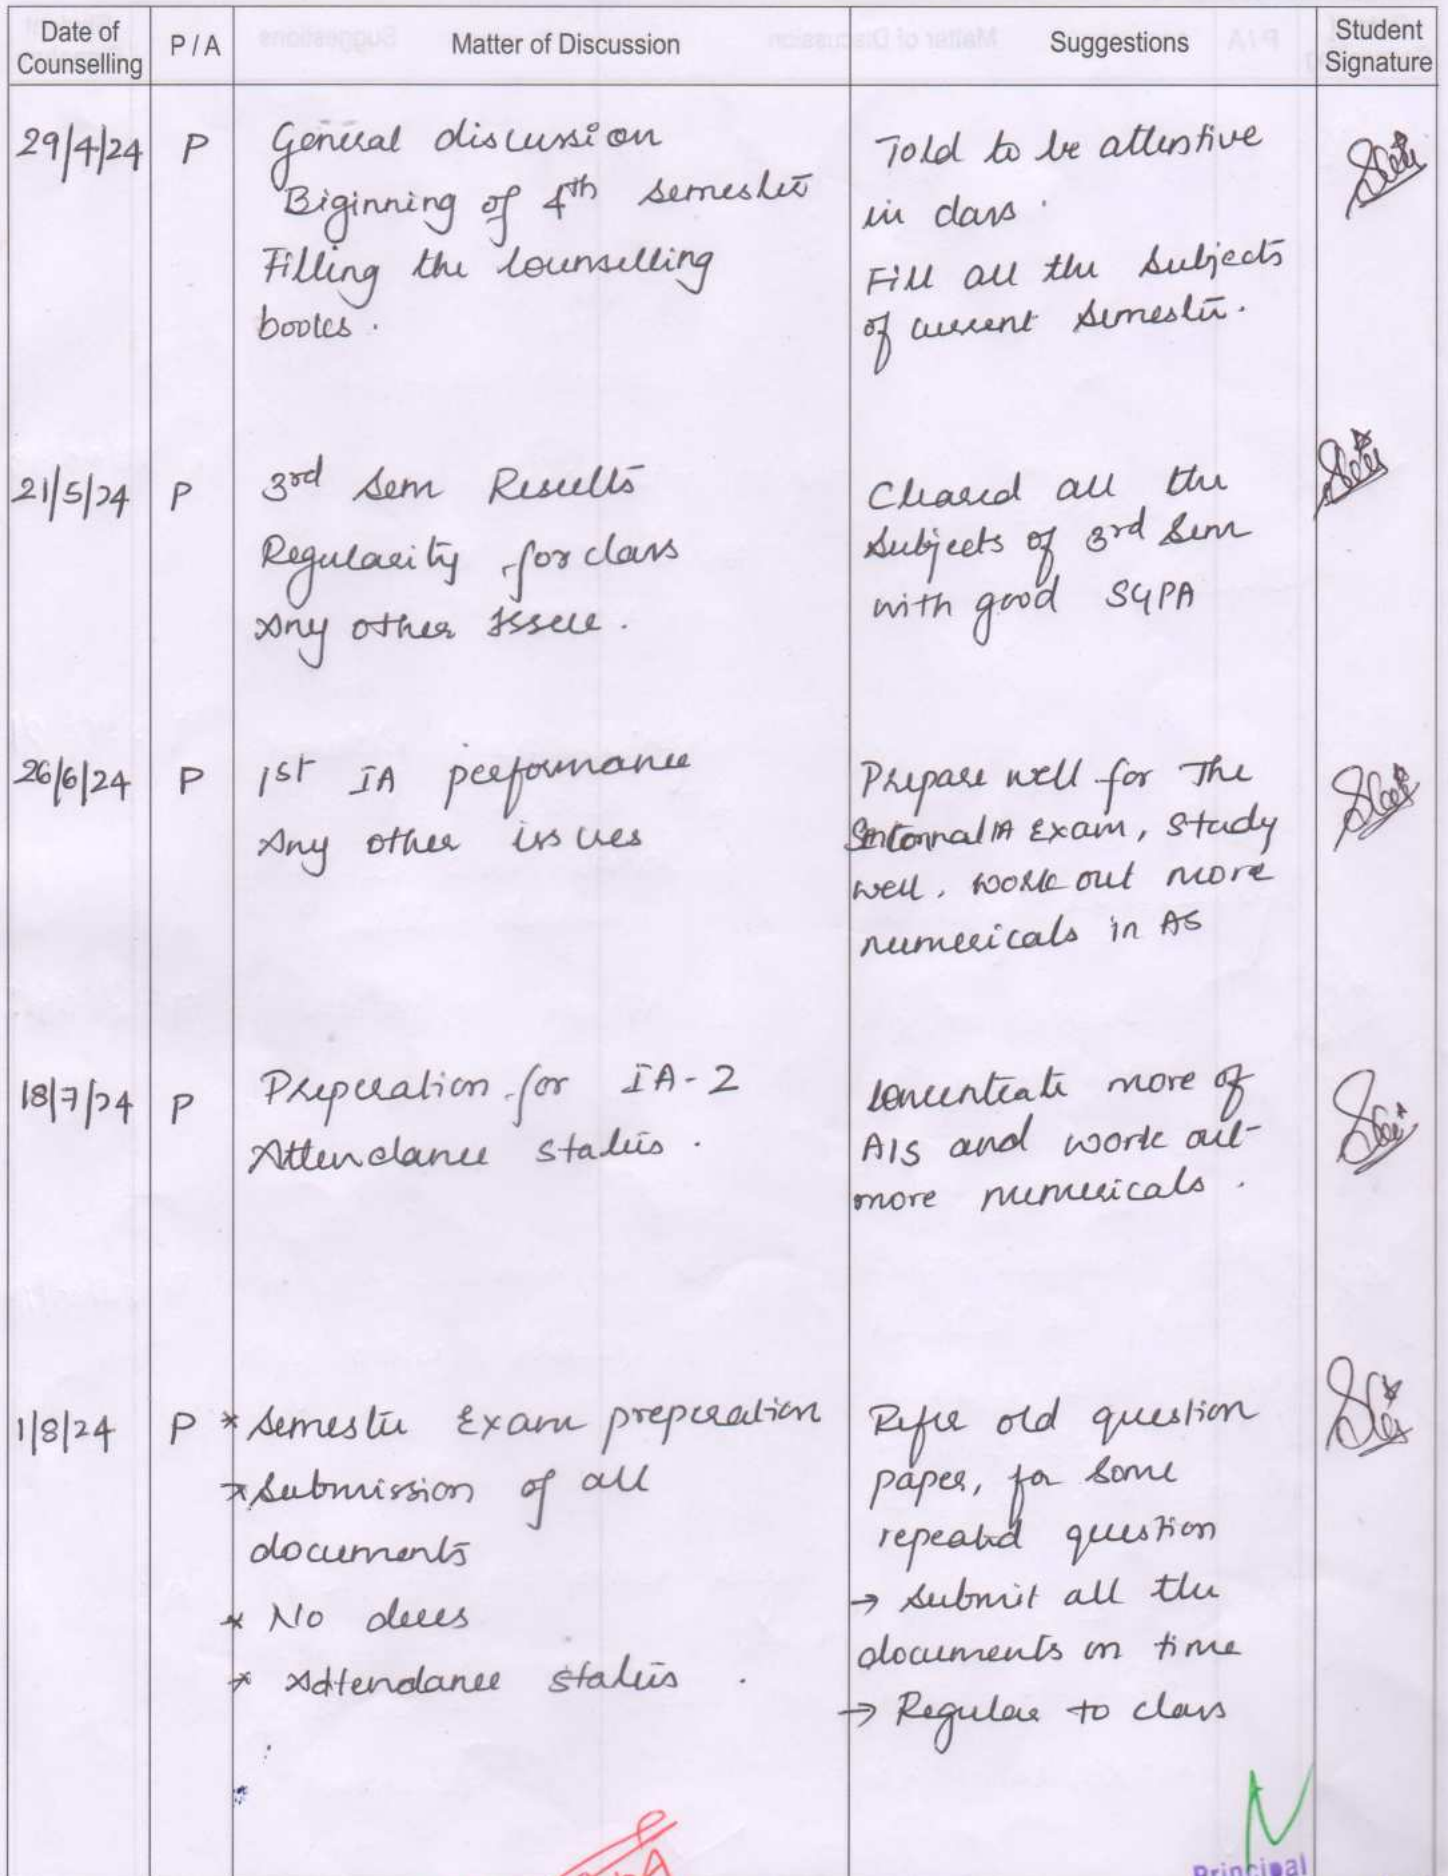 Date of Counselling | P / A | Matter of Discussion | Suggestions | Student Signature
29/4/24 P
General discussion
Biginning of 4th semester
Filling the Counselling
books.
Told to be attentive
in class.
Fill all the subjects
of current semester.
21/5/24 P
3rd Sem Results
Regularity for class
Any other Issue.
Cleared all the
subjects of 3rd Sem
with good SGPA
26/6/24 P
1st IA performance
Any other issues
Prepare well for The
IA Exam, Study
well. work out more
numericals in AS
18/7/24 P
Preperation for IA-2
Attendance status.
Concentrate more of
AIS and work out
more numericals.
1/8/24 P
* Semester Exam preperation
* Submission of all
documents
* No dues
* Attendance status.
Refer old question
paper, for some
repeated question
→ Submit all the
documents on time
→ Regular to class
Principal